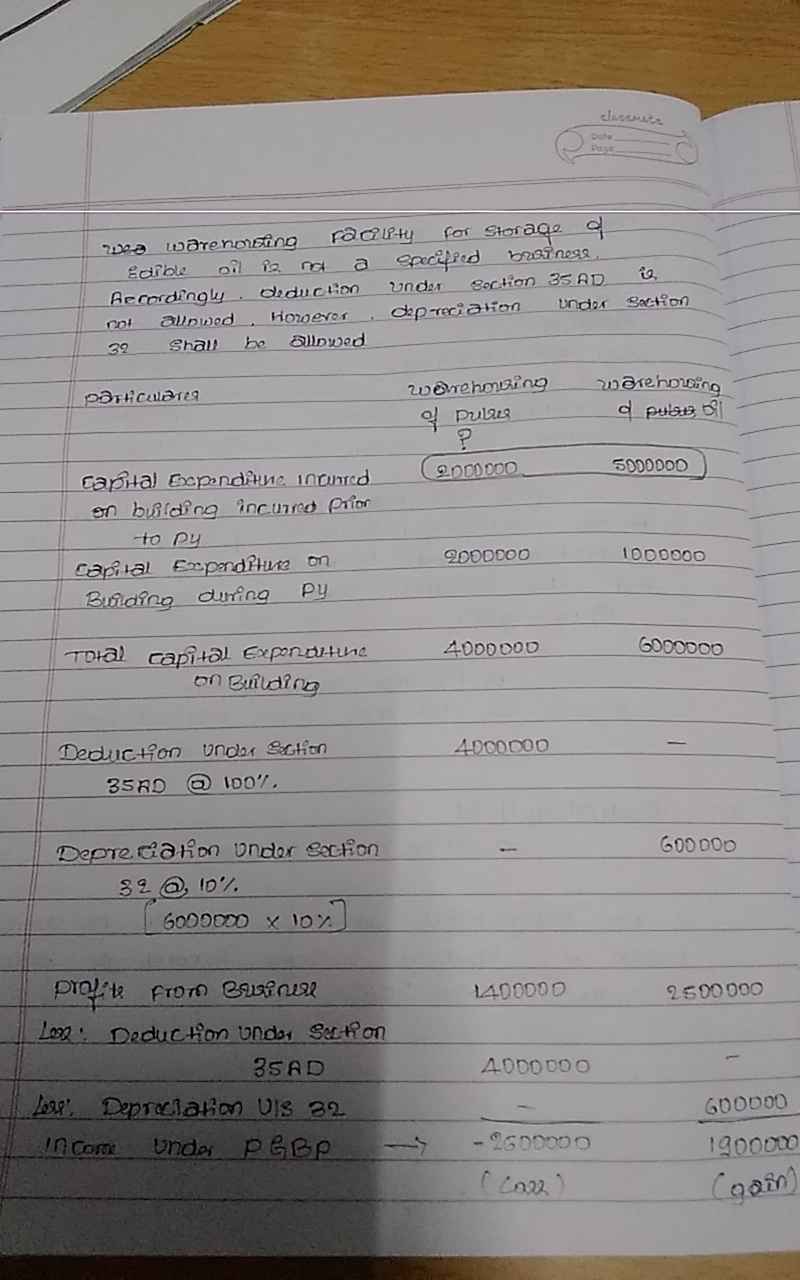 classmate
Date
Page
warehousing facility for storage of
Edible oil is not a specified business.
Accordingly, deduction under section 35AD is
not allowed. However, depreciation under section
32 shall be allowed
particulars warehousing warehousing
of pulses of pulses oil
?
Capital Expenditure incurred 2000000 5000000
on building incurred prior
to PY
Capital Expenditure on 2000000 1000000
Building during PY
Total Capital Expenditure 4000000 6000000
on Building
Deduction under section 4000000 —
35AD @ 100%.
Depreciation under section — 600000
32 @ 10%.
[6000000 x 10%]
profits from Business 1400000 2500000
Less: Deduction under section
35AD 4000000 —
Less: Depreciation U/S 32 — 600000
Income under PGBP → -2600000 1900000
(Loss) (gain)